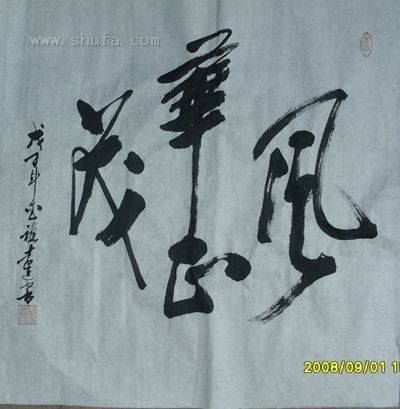 www.shufa.com
風華正茂
戊子年
2008/09/01 1